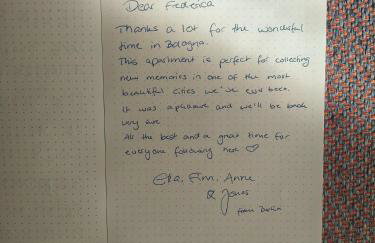 Dear Federica
Thanks a lot for the wonderful
time in Bologna.
This apartment is perfect for collecting
new memories in one of the most
beautiful cities we've ever been.
It was a pleasure and we'll be back
very sure
All the best and a great time for
everyone following here ♡
Finn, Anne
& Jonas
from Berlin